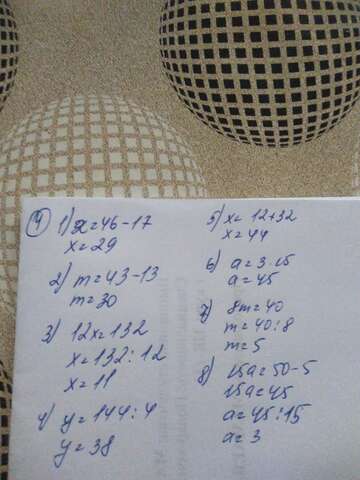 4) 1) x=46-17
x=29
2) m=43-13
m=30
3) 12x=132
x=132:12
x=11
4) y=144:4
y=38
5) x=12+32
x=44
6) a=3·15
a=45
7) 8m=40
m=40:8
m=5
8) 15a=50-5
15a=45
a=45:15
a=3